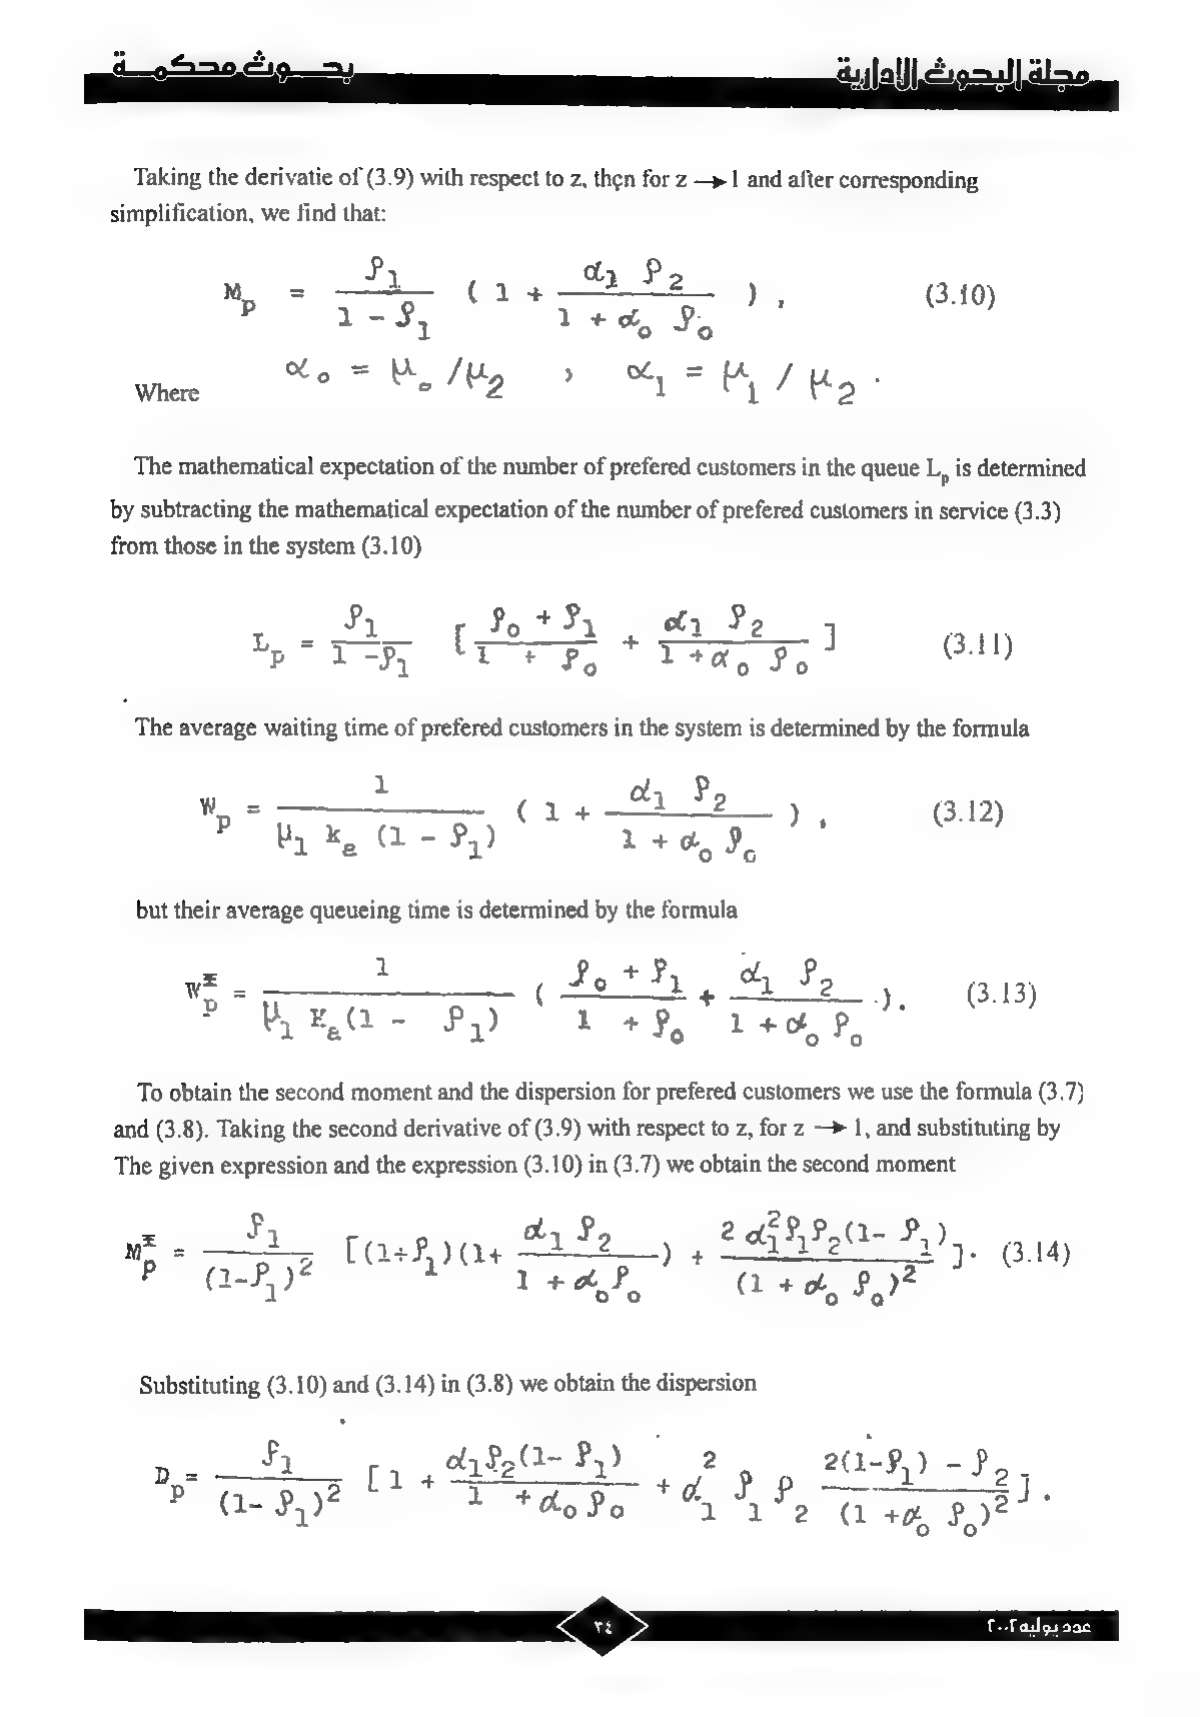 مجلة البحوث الإدارية
بحـــوث محكمـــة
Taking the derivatie of (3.9) with respect to z, then for z → 1 and after corresponding
simplification, we find that:
M_p = ρ_1 / (1 - ρ_1) ( 1 + α_1 ρ_2 / (1 + α_0 ρ_0) ) , (3.10)
Where α_0 = μ_0 /μ_2 , α_1 = μ_1 / μ_2 .
The mathematical expectation of the number of prefered customers in the queue L_p is determined
by subtracting the mathematical expectation of the number of prefered customers in service (3.3)
from those in the system (3.10)
L_p = ρ_1 / (1 - ρ_1) [ (ρ_0 + ρ_1) / (1 + ρ_0) + α_1 ρ_2 / (1 + α_0 ρ_0) ] (3.11)
The average waiting time of prefered customers in the system is determined by the formula
W_p = 1 / (μ_1 k_e (1 - ρ_1)) ( 1 + α_1 ρ_2 / (1 + α_0 ρ_0) ) , (3.12)
but their average queueing time is determined by the formula
W*_p = 1 / (μ_1 K_e (1 - ρ_1)) ( (ρ_0 + ρ_1) / (1 + ρ_0) + α_1 ρ_2 / (1 + α_0 ρ_0) ). (3.13)
To obtain the second moment and the dispersion for prefered customers we use the formula (3.7)
and (3.8). Taking the second derivative of (3.9) with respect to z, for z → 1, and substituting by
The given expression and the expression (3.10) in (3.7) we obtain the second moment
M*_p = ρ_1 / (1-ρ_1)^2 [(1+ρ_1)(1+ α_1 ρ_2 / (1 + α_0 ρ_0)) + 2 α_1^2 ρ_1 ρ_2 (1- ρ_1) / (1 + α_0 ρ_0)^2 ]. (3.14)
Substituting (3.10) and (3.14) in (3.8) we obtain the dispersion
D_p = ρ_1 / (1- ρ_1)^2 [ 1 + α_1 ρ_2 (1- ρ_1) / (1 + α_0 ρ_0) + α_1^2 ρ_1 ρ_2 (2(1-ρ_1) - ρ_2) / (1 + α_0 ρ_0)^2 ] .
٣٤
عدد يوليه ٢٠٠٢